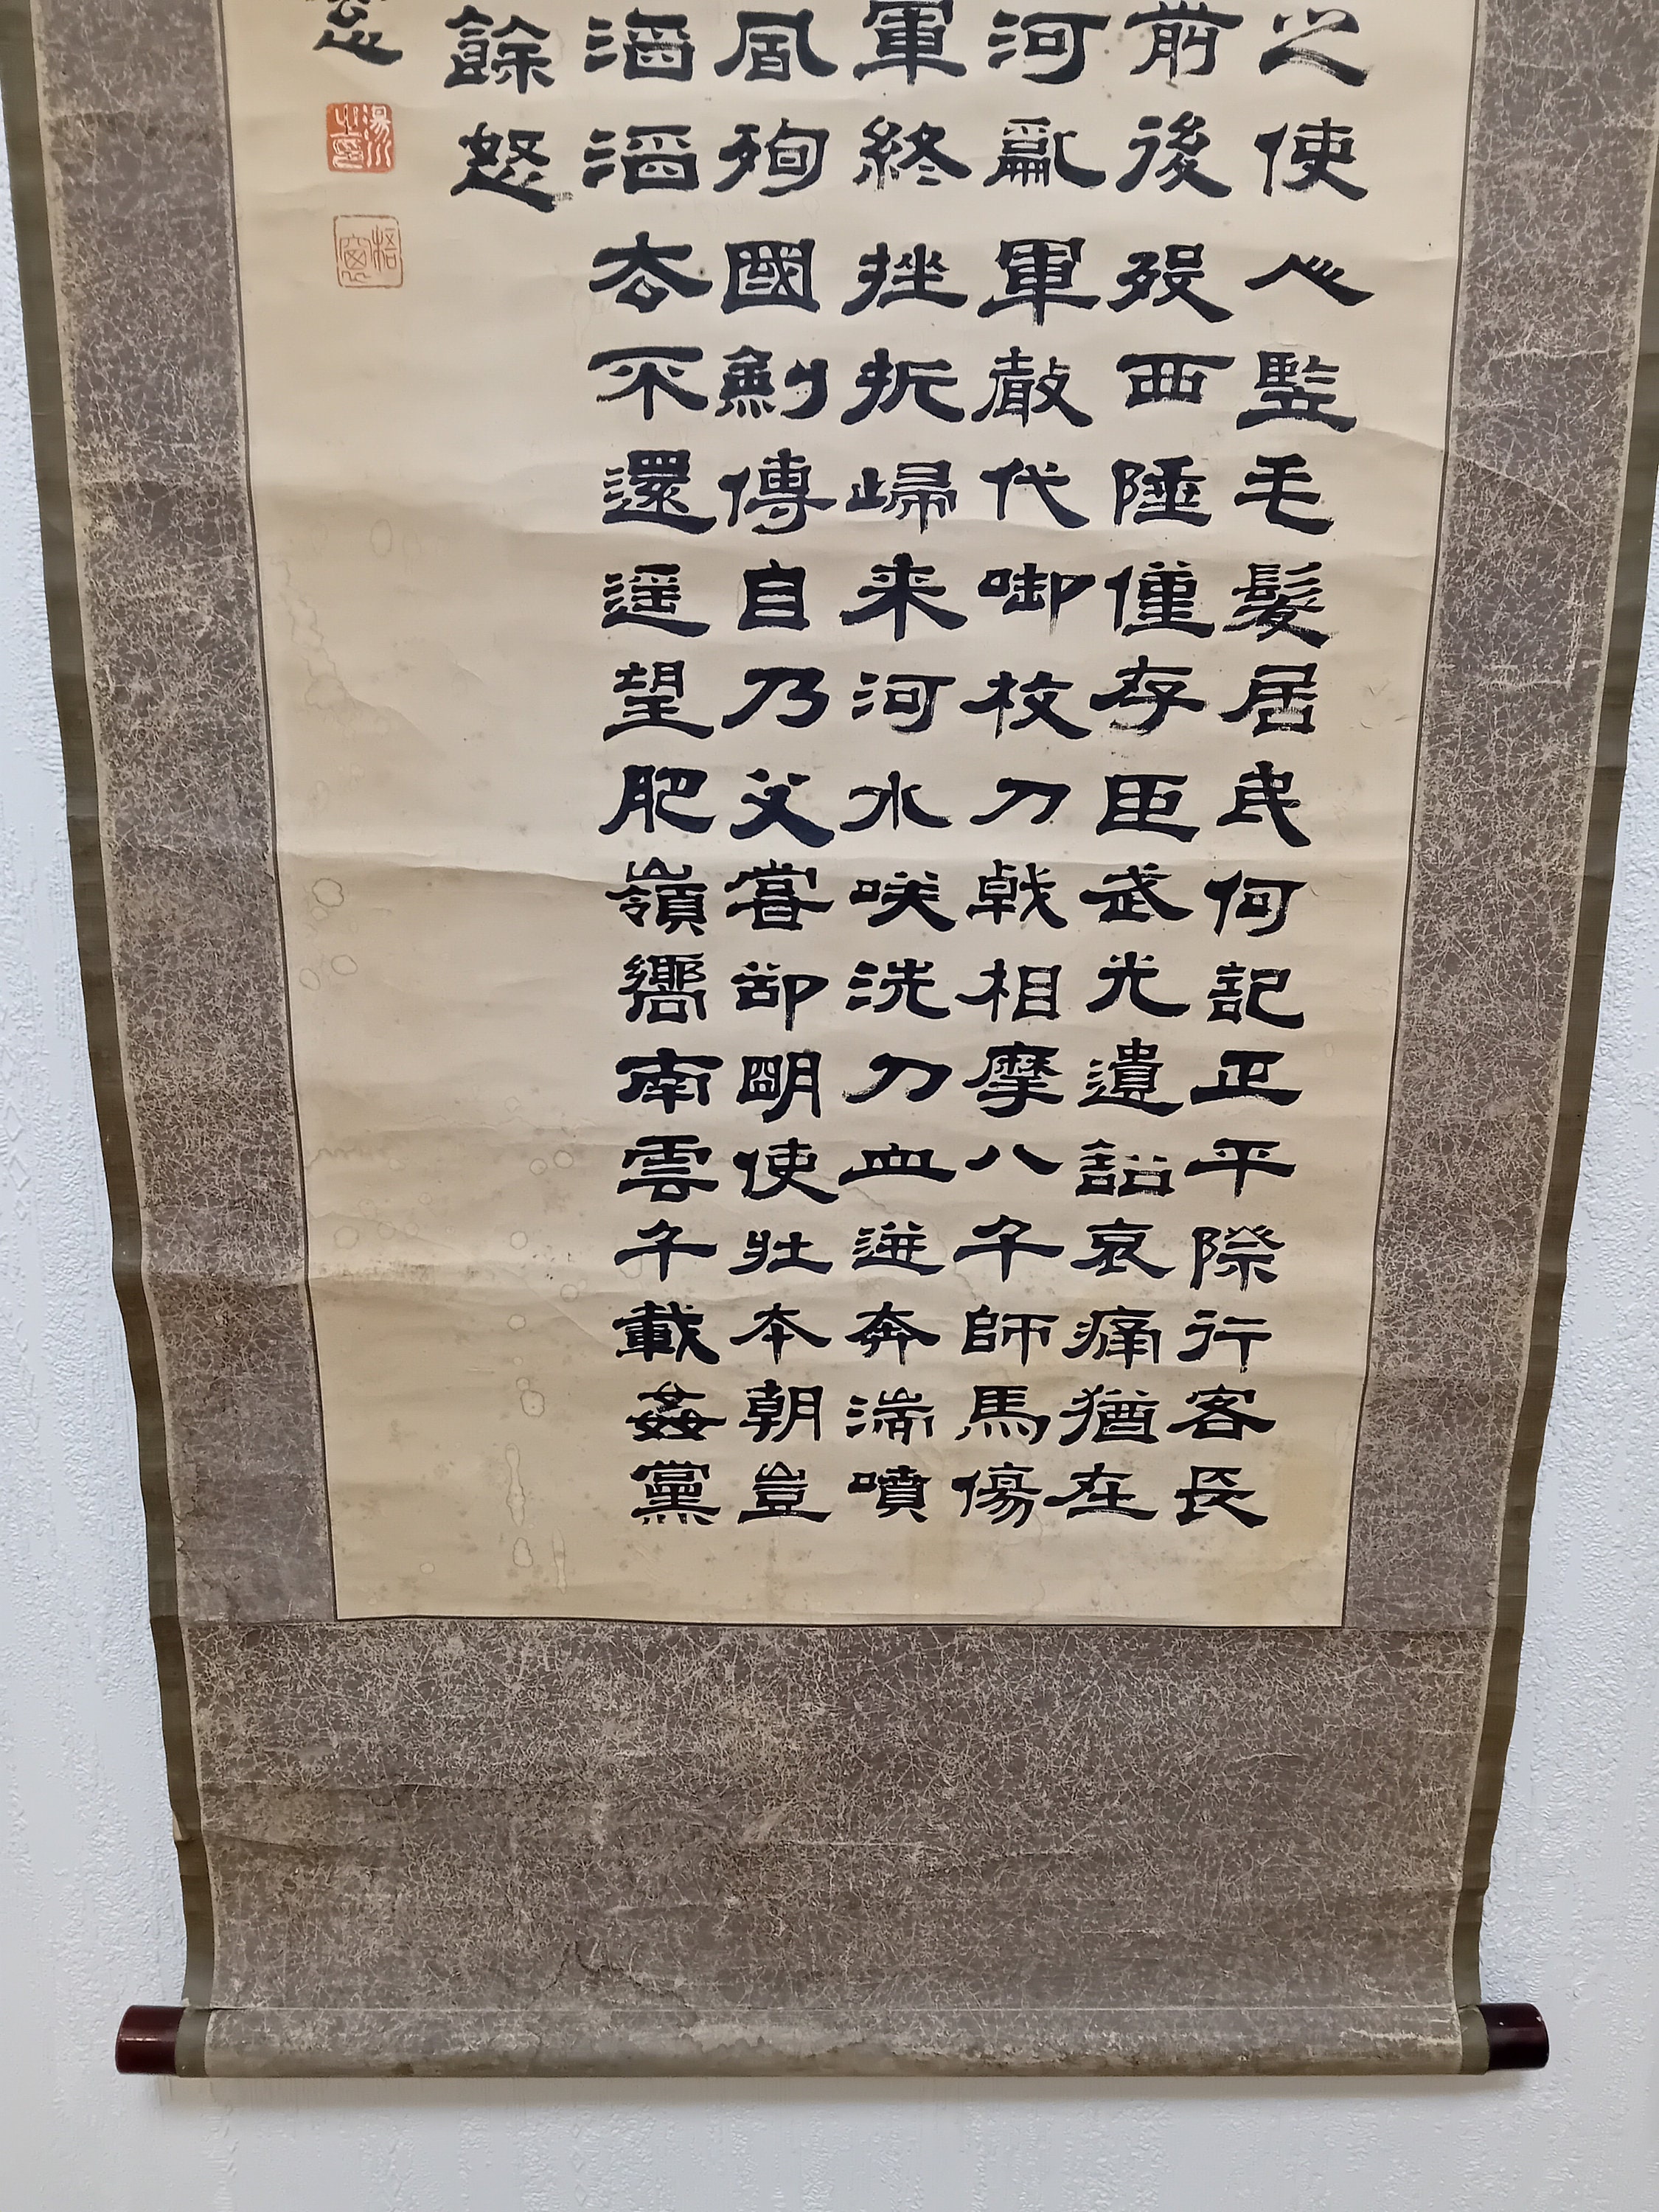 之使人竪毛髮居民何記正平際行客長
前後歿西陲僅存臣武光遺詔哀痛猶在
河亂軍聲代啣枚刀戟相摩八千師馬傷
軍終挫折歸来河水咲洗刀血迸奔湍噴
風殉國劍傳自乃父嘗卻明使壯本朝豈
滔滔去不還遥望肥嶺嚮南雲千載姦黨
餘怒
梧窗